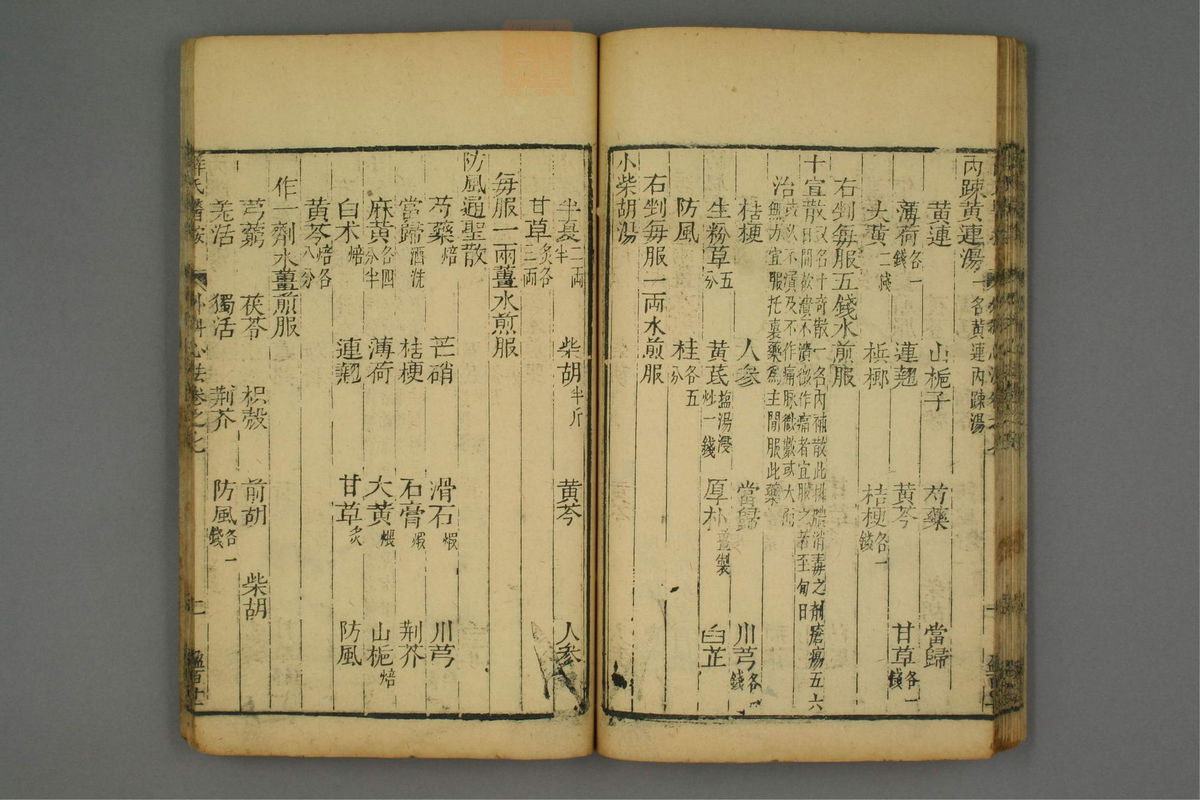 內疎黃連湯一名黃連內疎湯
黃連 山梔子 芍藥 當歸
薄荷各一錢 連翹 黃芩 甘草各一錢
大黃二錢 檳榔 桔梗各一錢
右剉每服五錢水煎服
十宣散又名十奇散一名內補散此排膿消毒之劑瘡瘍五六
日間欲潰不潰微作痛者宜服之若至旬日
治或以不潰及不作痛脉微數或大而
無力宜服托裏藥爲主間服此藥
桔梗 人參 當歸 川芎各一錢
生粉草五分 黃茋塩湯浸炒一錢 厚朴薑製 白芷
防風 桂各五分
右剉每服一兩水煎服
小柴胡湯
半夏二兩半 柴胡半斤 黃芩 人參
甘草炙各三兩
每服一兩薑水煎服
防風通聖散
芍藥焙 芒硝 滑石煆 川芎
當歸酒洗 桔梗 石膏煆 荆芥
麻黃各四分半 薄荷 大黃煨 山梔焙
白朮焙 連翹 甘草炙 防風
黃芩焙各八分
作一劑水薑煎服
芎藭 茯苓 枳殼 前胡 柴胡
羌活 獨活 荆芥 防風各一錢
薛氏醫案 外科心法卷之七